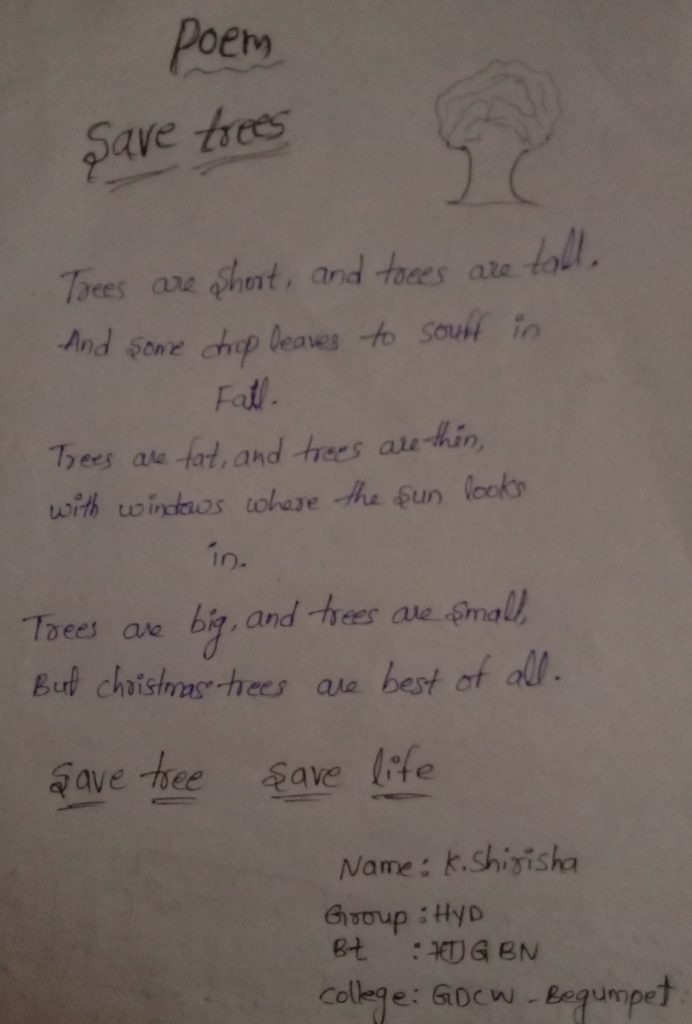 Poem
Save trees
Trees are short, and trees are tall.
And some chop leaves to scuff in
Fall.
Trees are fat, and trees are thin,
with windows where the sun looks
in.
Trees are big, and trees are small,
But christmas trees are best of all.
Save tree Save life
Name: K. Shirisha
Group: HYD
Bt : GBN
College: GDCW - Begumpet